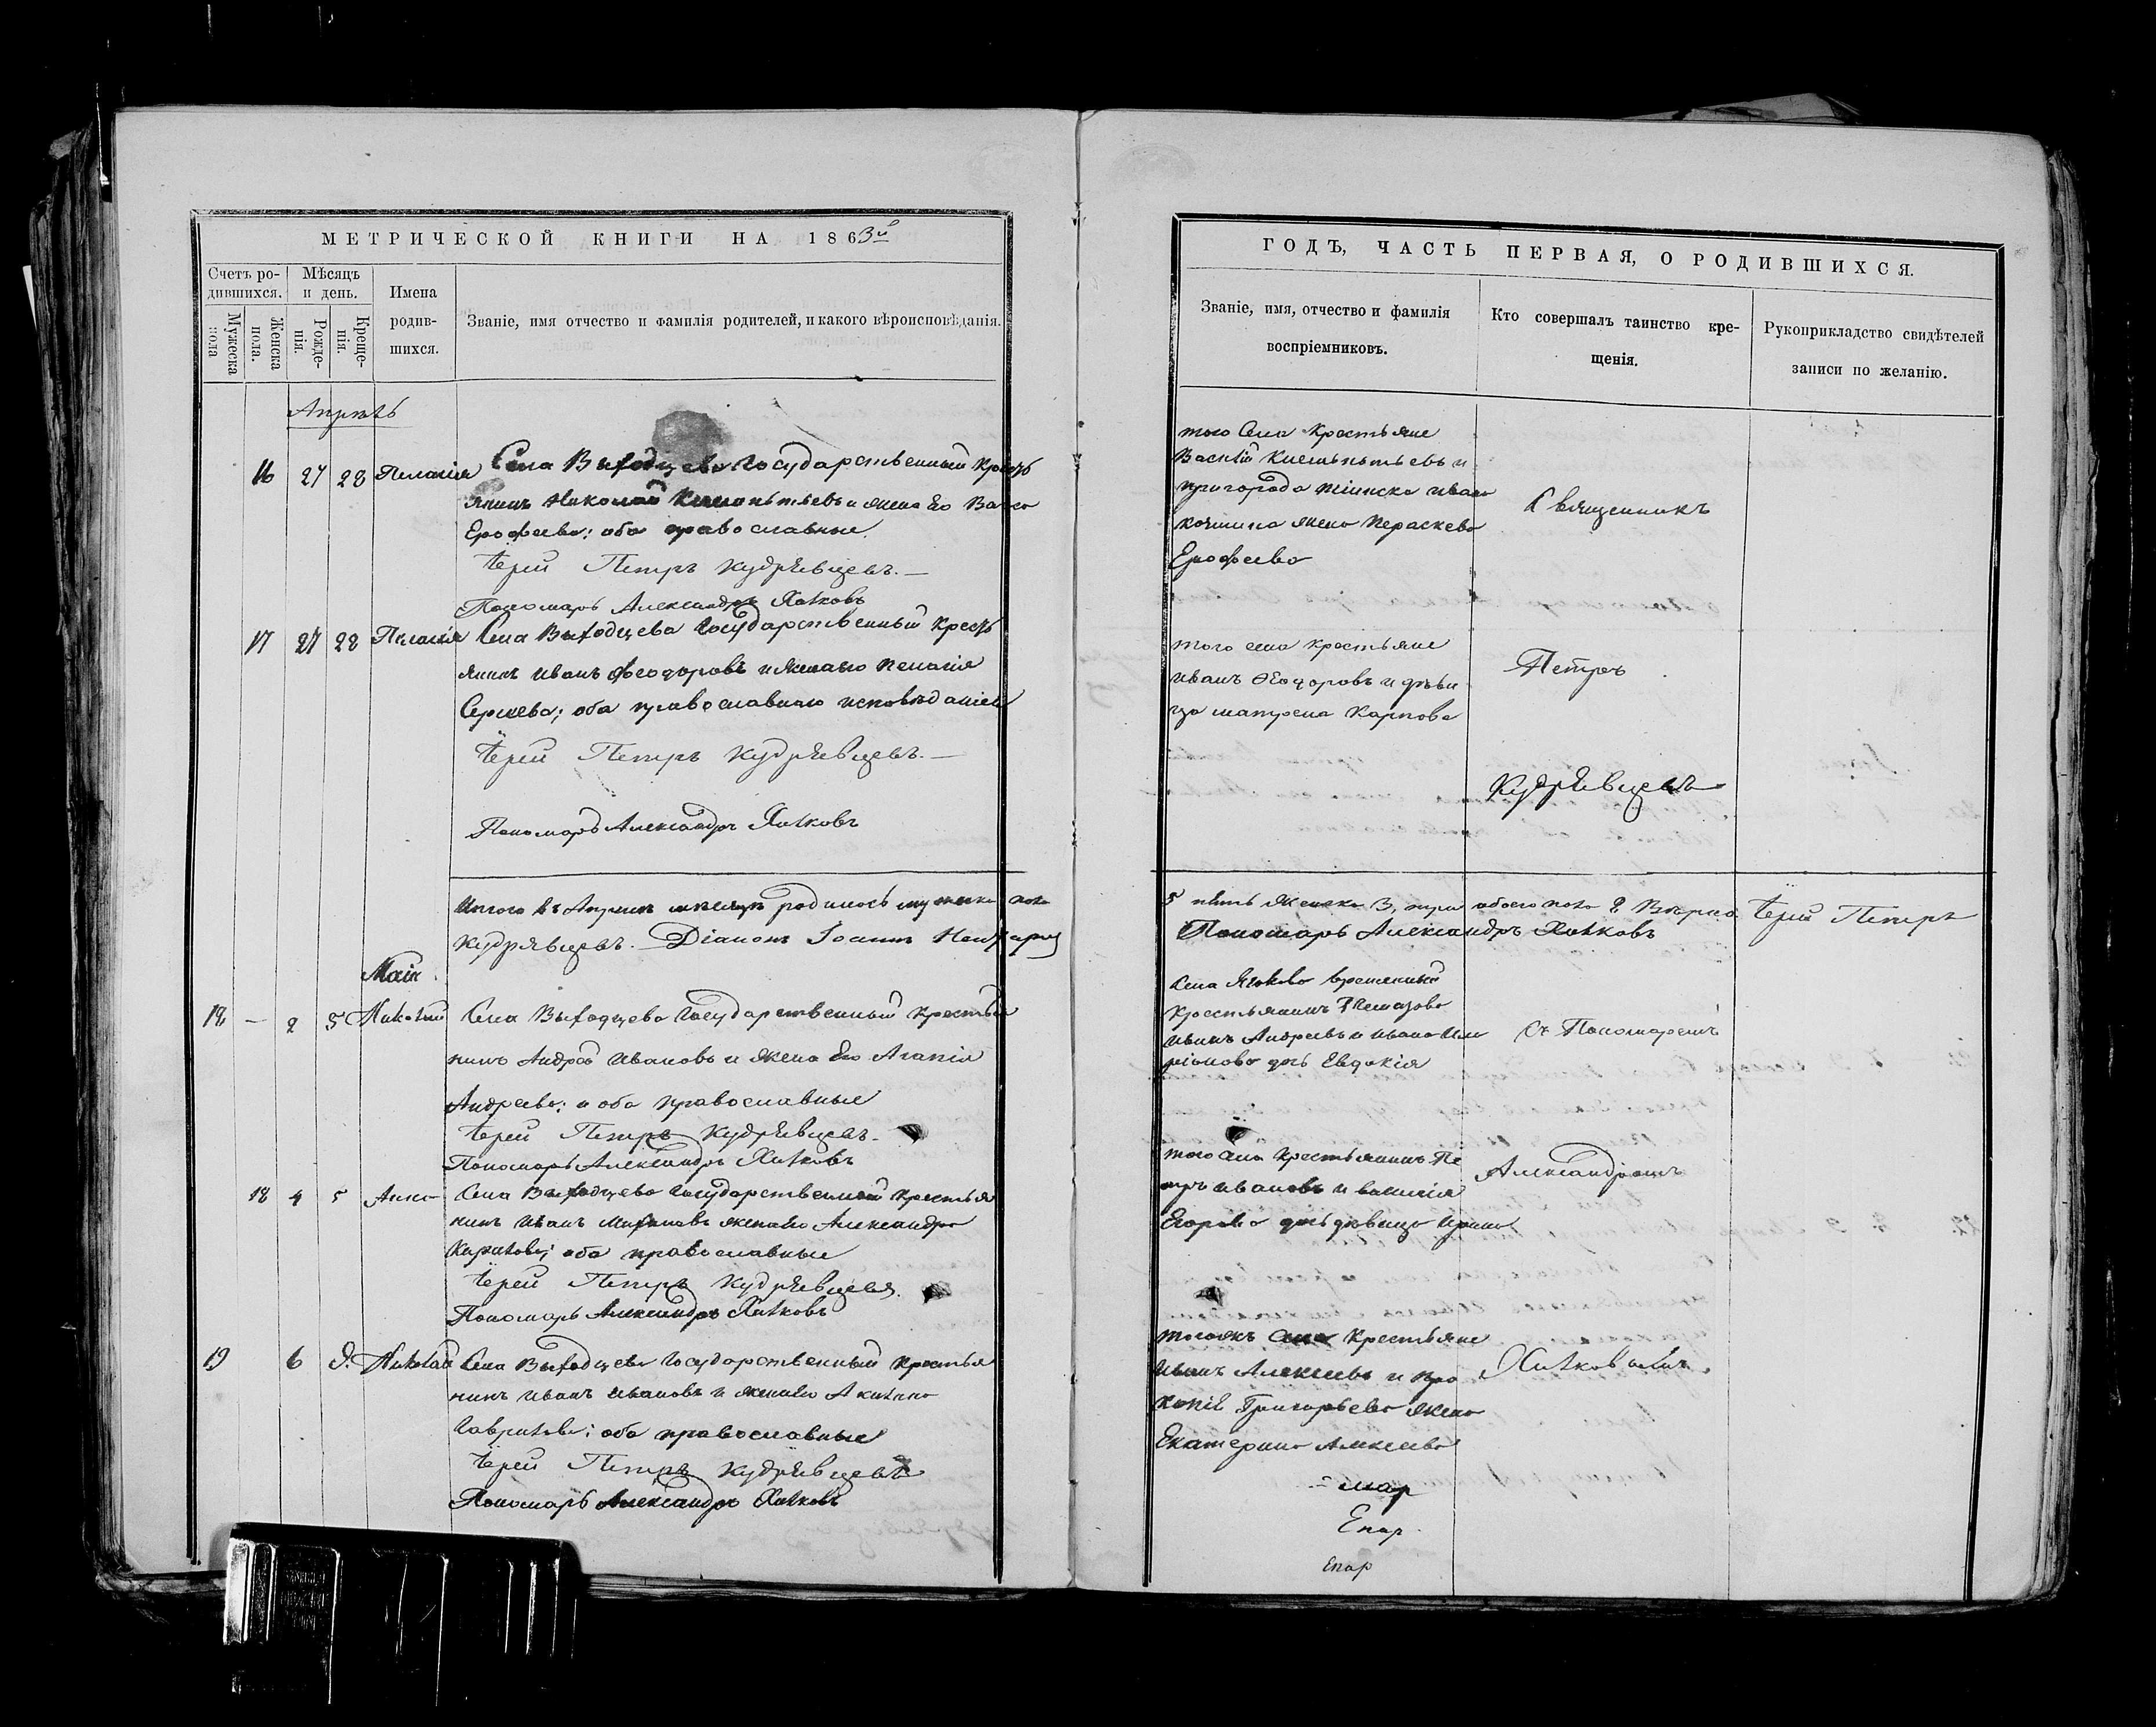 МЕТРИЧЕСКОЙ КНИГИ НА 1863й
Счетъ родившихся.
Мѣсяцъ и день.
Имена родившихся.
Званіе, имя отчество и фамилія родителей, и какого вѣроисповѣданія.
Мужеска пола
Женска пола.
Рожденія.
Крещенія.
Апрѣль
16 27 28 Пелагія Села Выходцева Государственный кресть
янинъ Николай Климентьевъ и жена его
Ерофеева; оба православные.
Іерей Петръ Кудрявцевъ.—
Пономарь Александръ Хитковъ
17 27 28 Пелагія Села Выходцева Государственный кресть
янинъ Иванъ Феодоровъ и жена его Пелагія
Сергеева; оба православнаго исповѣданія
Іерей Петръ Кудрявцевъ.—
Пономарь Александръ Хитковъ
Итого въ Апрѣлѣ мѣсяцѣ родилось мужеска пола
Кудрявцевъ. Діаконъ Іоаннъ
Маія
18 — 2 5 Николай Села Выходцева Государственный крестья
нинъ Андрей Ивановъ и жена его Агапія
Андреева; и оба православные
Іерей Петръ Кудрявцевъ.
Пономарь Александръ Хитковъ
18 4 5 Анна Села Выходцева Государственный крестья
нинъ Иванъ жена его Александра
Карпова; оба православные
Іерей Петръ Кудрявцевъ.
Пономарь Александръ Хитковъ
19 6 9. Николай Села Выходцева Государственный крестья
нинъ Иванъ Ивановъ и жена его Акилина
Гаврилова; оба православные
Іерей Петръ Кудрявцевъ
Пономарь Александръ Хитковъ
ГОДЪ, ЧАСТЬ ПЕРВАЯ, О РОДИВШИХСЯ.
Званіе, имя, отчество и фамилія воспріемниковъ.
Кто совершалъ таинство крещенія.
Рукоприкладство свидѣтелей записи по желанію.
того села крестьяне
Василій Климентьевъ и
пригорода Тіинска Ивана
жена Параскева
Ерофеева
Священникъ
того села крестьяне
Иванъ Ѳеодоровъ и дѣви
ца Матрена Карпова
Петръ
Кудрявцевъ
5 пять женска 3, три обоего пола 8 Вѣрно Іерей Петръ
Пономарь Александръ Хитковъ
Села временный
крестьянинъ
Иванъ Андреевъ и Ивана
дчь Евдокія
Съ Пономаремъ
того села крестьянинъ Пе
тръ Ивановъ и Василія
Егорова дчь дѣвица Ирина
Александромъ
тогожъ села крестьяне
Иванъ Алексеевъ и Про
копія Григорьева жена
Екатерина Алексеева
Хитковымъ
Епар.
Епар